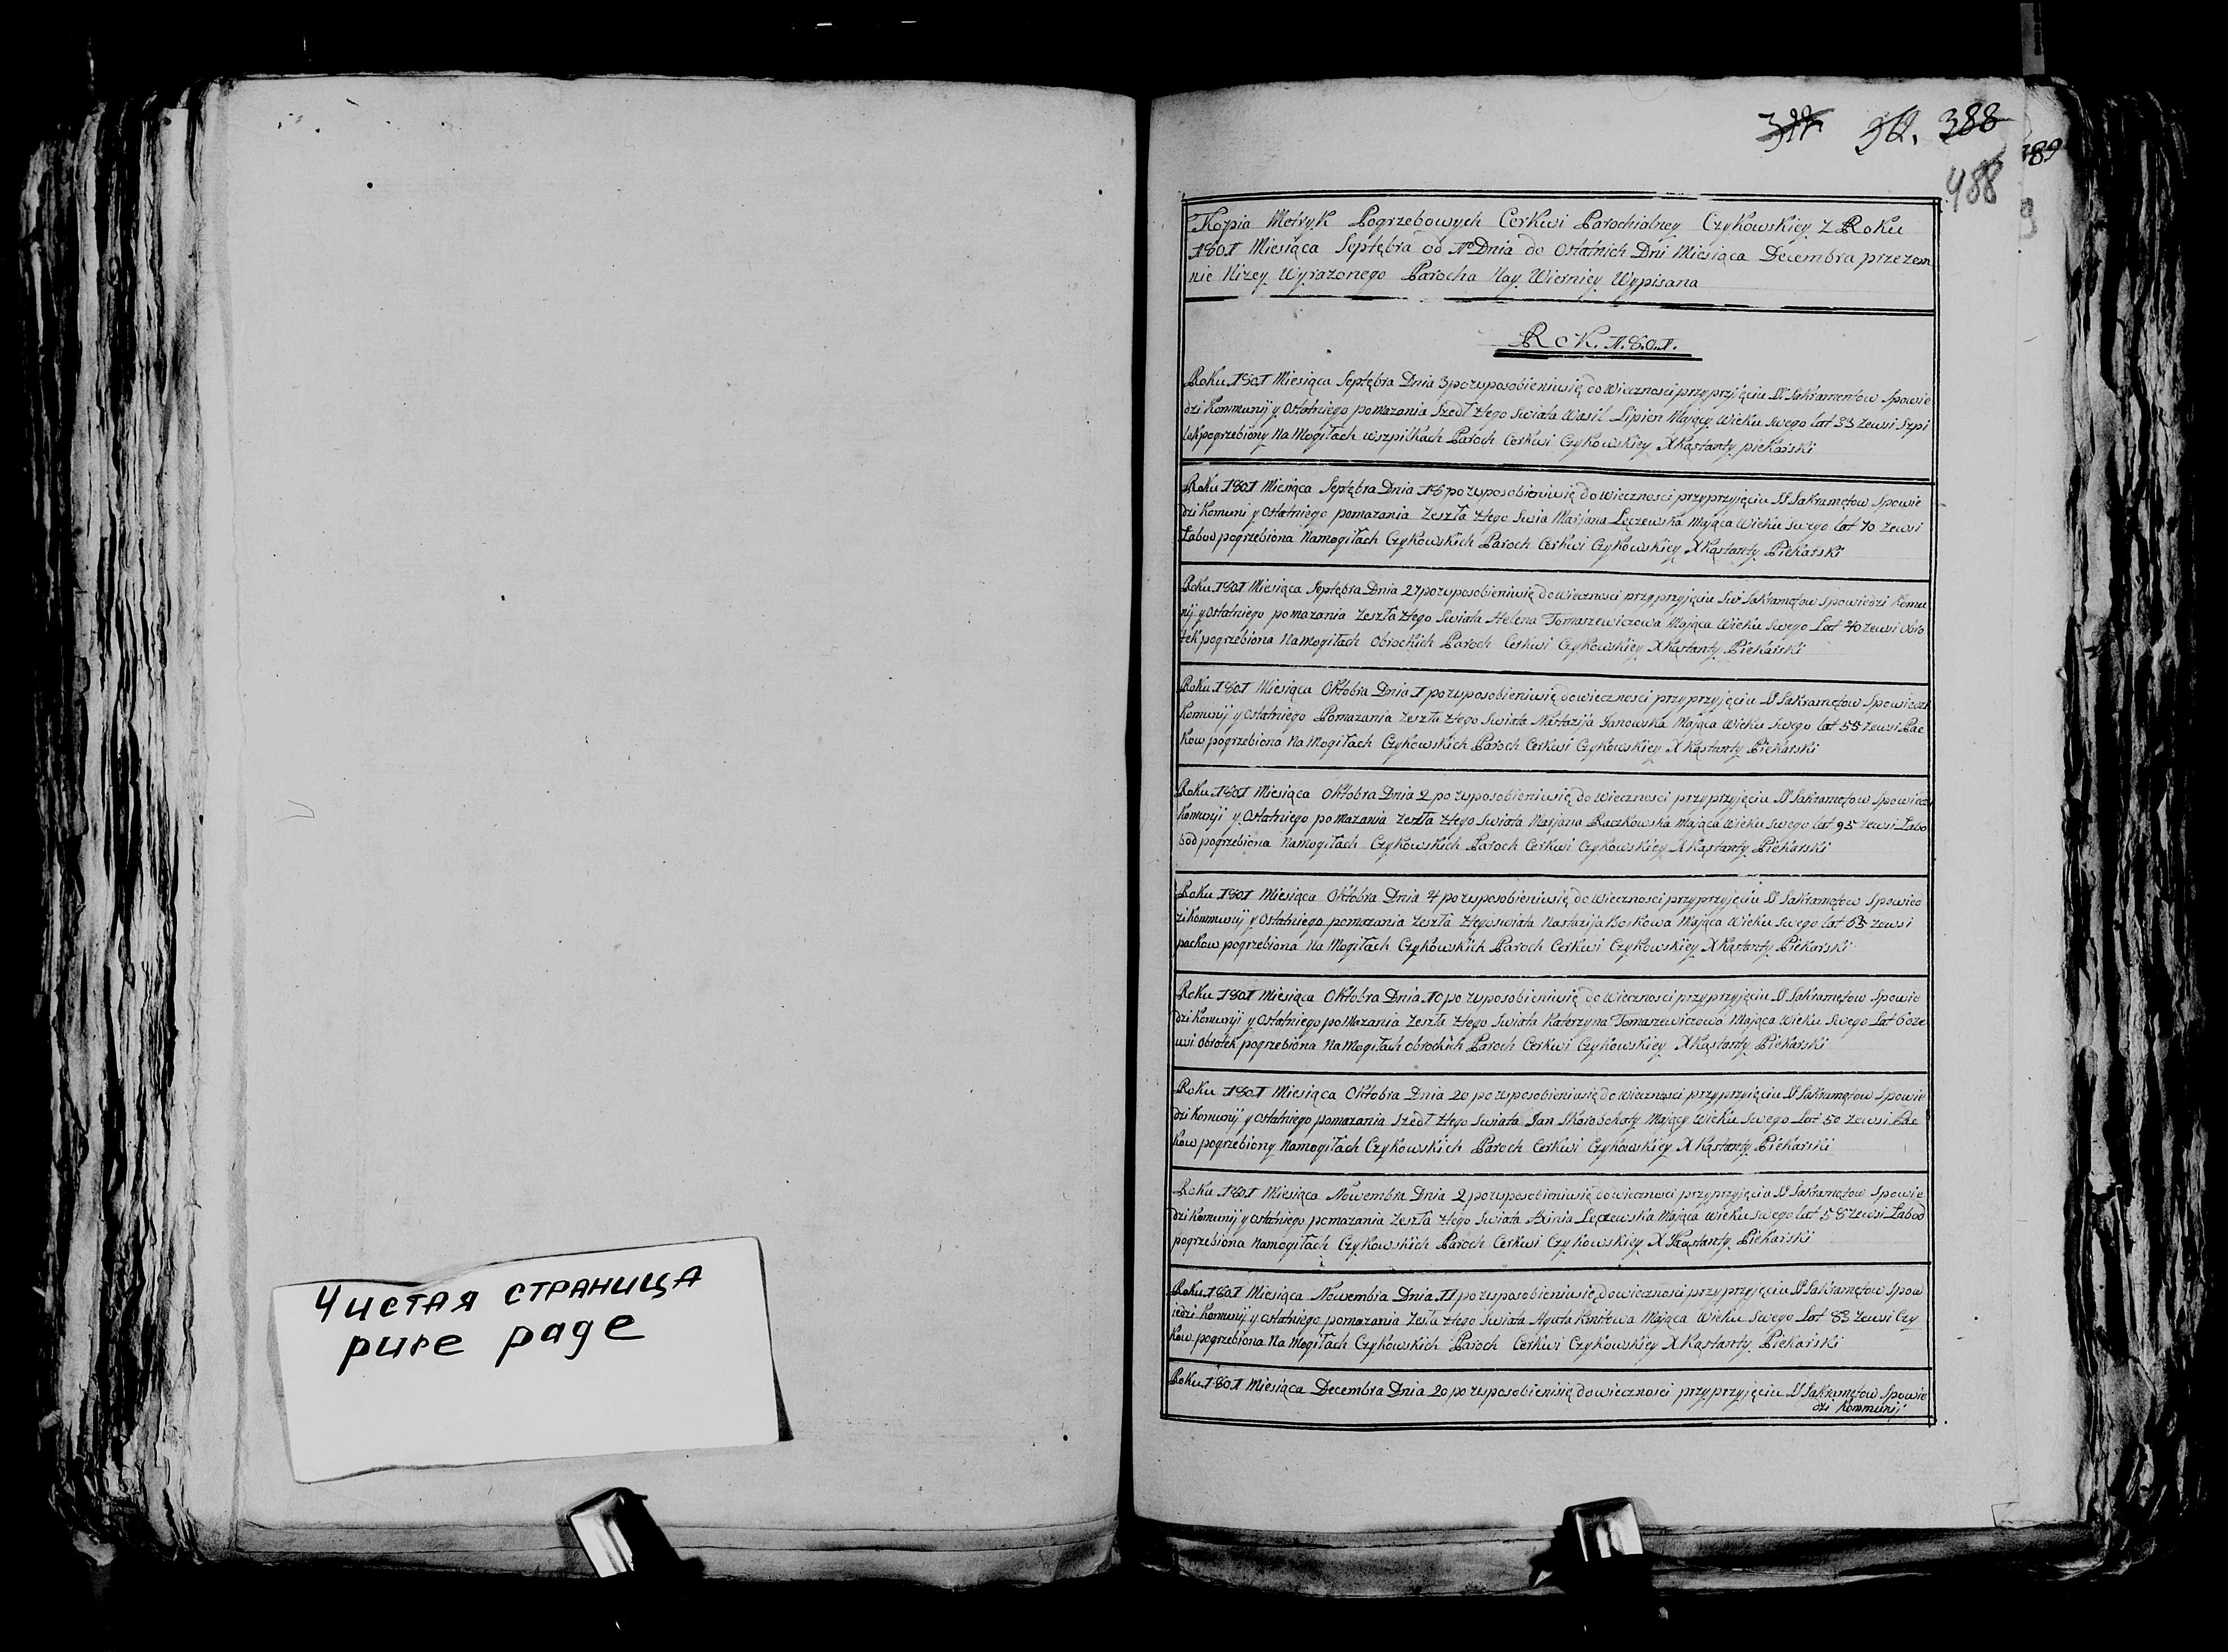 Чистая страница
pure page
388
488
Kopia Metryk Pogrzebowych Cerkwi Parochialney Czykowskiey Z Roku
1801 Miesiąca Septębra od 1º Dnia do Ostatnich Dni Miesiąca Decembra przezem
nie Niżey Wyrażonego Parocha Nay Wierniey Wypisana
Rok. 1.8.0.1.
Roku 1801 Miesiąca Septębra Dnia 3 po usposobieniu się do Wiecznosci przy przyjęciu SS Sakramentow Spowie
dzi Kommunij y Ostatniego pomazania Szedł z tego Swiata Wasil Lipien Mający Wieku Swego lat 33 zewsi Szpi
lek pogrzebiony Na Mogiłach w szpilkach Paroch Cerkwi Czykowskiey X Kąstanty piekarski
Roku 1801 Miesiąca Septębra Dnia 18 po usposobieniu się do wiecznosci przy przyjęciu SS Sakramętow Spowie
dzi Komuni y Ostatniego pomazania Zeszła z tego Swia Marjana Lęczewska Mająca Wieku Swego lat 70 zewsi
Łabod pogrzebiona Na mogiłach Czykowskich Paroch Cerkwi Czykowskiey X Kąstanty Piekarski
Roku 1801 Miesiąca Septębra Dnia 27 po usposobieniu się do Wiecznosci przy przyjęciu Swi Sakramętow Spowiedzi Komu
nij y Ostatniego pomazania Zeszła z tego Swiata Helena Tomaszewiczowa Mająca Wieku Swego Lat 40 zewsi Obro
tek pogrzebiona Na Mogiłach Obrockich Paroch Cerkwi Czykowskiey X Kąstanty Piekarski
Roku 1801 Miesiąca Oktobra Dnia 1 po usposobieniu się do wiecznosci przy przyjęciu SS Sakramętow Spowiedzi
Komunij y Ostatniego Pomazania Zeszła z tego Swiata Nastazija Janowska Mająca Wieku Swego lat 55 zewsi Pac
kow pogrzebiona Na Mogiłach Czykowskich Paroch Cerkwi Czykowskiey X Kąstanty Piekarski
Roku 1801 Miesiąca Oktobra Dnia 2 po usposobieniu się do Wiecznosci przy przyjęciu SS Sakramętow Spowiedzi
Komunji y Ostatniego pomazania Zeszła z tego Swiata Marjana Raczkowska Mająca Wieku Swego lat 95 zewsi Łabo
bod pogrzebiona Na mogiłach Czykowskich Paroch Cerkwi Czykowskiey X Kąstanty Piekarski
Roku 1801 Miesiąca Oktobra Dnia 4 po usposobieniu się do Wiecznosci przy przyjęciu SS Sakramętow Spowied
zi Kommunij y Ostatniego pomazania Zeszła z tego swiata Nastazija Boskowa Mająca Wieku Swego lat 65 zewsi
packow pogrzebiona Na Mogiłach Czykowskich Paroch Cerkwi Czykowskiey X Kąstanty Piekarski
Roku 1801 Miesiąca Oktobra Dnia 10 po usposobieniu się do Wiecznosci przy przyjęciu SS Sakramętow Spowie
dzi Komunji y Ostatniego pomazania Zeszła z tego Swiata Katerzyna Tomaszewiczowa Mająca Wieku Swego Lat 60 ze
wsi Obrotek pogrzebiona Na Mogiłach obrockich Paroch Cerkwi Czykowskiey X Kąstanty Piekarski
Roku 1801 Miesiąca Oktobra Dnia 20 po usposobieniu się do wiecznosci przy przyięciu SS Sakramętow Spowie
dzi Komunij y Ostatniego pomazania Szedł z tego Swiata Jan Skorobohaty Mający Wieku Swego Lat 50 zewsi Pac
kow pogrzebiony Na mogiłach Czykowskich Paroch Cerkwi Czykowskiey X Kąstanty Piekarski
Roku 1801 Miesiąca Nowembra Dnia 2 po usposobieniu się do wiecznosci przy przyjęciu SS Sakramętow Spowie
dzi Komunij y Ostatniego pomazania Zeszła z tego Swiata Lęczewska Mająca wieku swego lat 58 zewsi Łabod
pogrzebiona Na mogiłach Czykowskich Paroch Cerkwi Czykowskiey X Kąstanty Piekarski
Roku 1801 Miesiąca Nowembra Dnia 11 po usposobieniu się do wiecznosci przy przyjęciu SS Sakramętow Spow
iedzi Komunij y Ostatniego pomazania Zesła z tego Swiata Agata Knitewa Mająca Wieku Swego Lat 83 zewsi Czy
kow pogrzebiona Na Mogiłach Czykowskich Paroch Cerkwi Czykowskiey X Kąstanty Piekarski
Roku 1801 Miesiąca Decembra Dnia 20 po usposobieni się do wiecznosci przy przyjęciu SS Sakramętow Spowie
dzi Kommunij